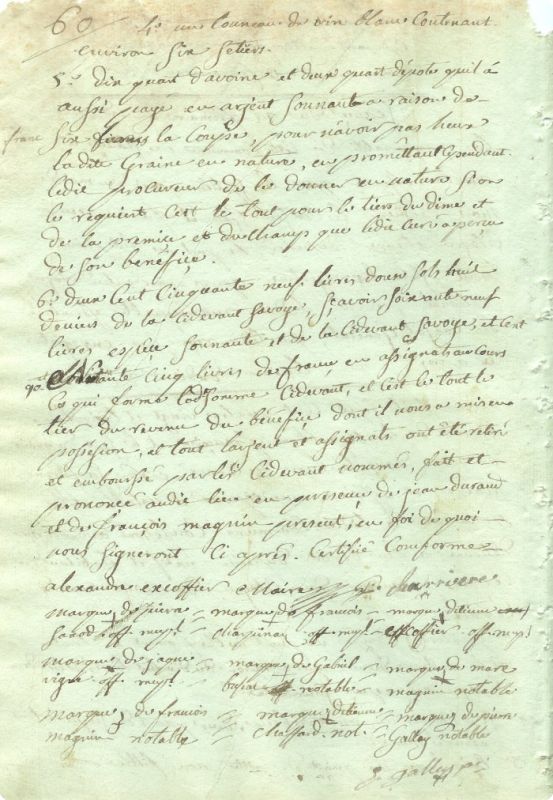 60 4° un tonneau de vin blanc contenant
environ six setiers.
5° dix quart davoine et deux quart dépote quil à
aussi payé en argent sonnant a raison de
franc six la Coupe, pour n'avoir pas heu
la dite Graine en nature, en promettant Cependant
ledit procureur de le donner en nature si on
le requiert C'est le tout pour le tiers du dime et
de la premice et du champs que ledit curé a perçu
de son benéfice.
6° deux Cent Cinquante neuf livres douze sols huit
deniers de la Cidevant Savoye, sçavoir soixante neuf
livres espèce sonnante et de la Cidevant Savoye, et Cent
cinq livres de france en assignats au Cours
Ce qui forme Cidevant, et C'est le tout le
tier du revenu du bénéfice dont il nous a mis en
possésion, et tout largent et assignats ont été retiré
et emboursé par les Cidevant nommés, fait et
prononcé audit lieu en presence de jean durand
et de françois magnin present, en foi de quoi
nous signeront Ci après. Certifié Conforme
alexandre excoffier Maire
marque de pierre marque de francois marque
off. off. mupl excoffier off. mupl
marque de jaque marque de Gabriel marque de marc
off. mupl notable magnin notable
marque de francois marque détienne marque de pierre
magnin notable chassard not. Gallay notable
Gallay